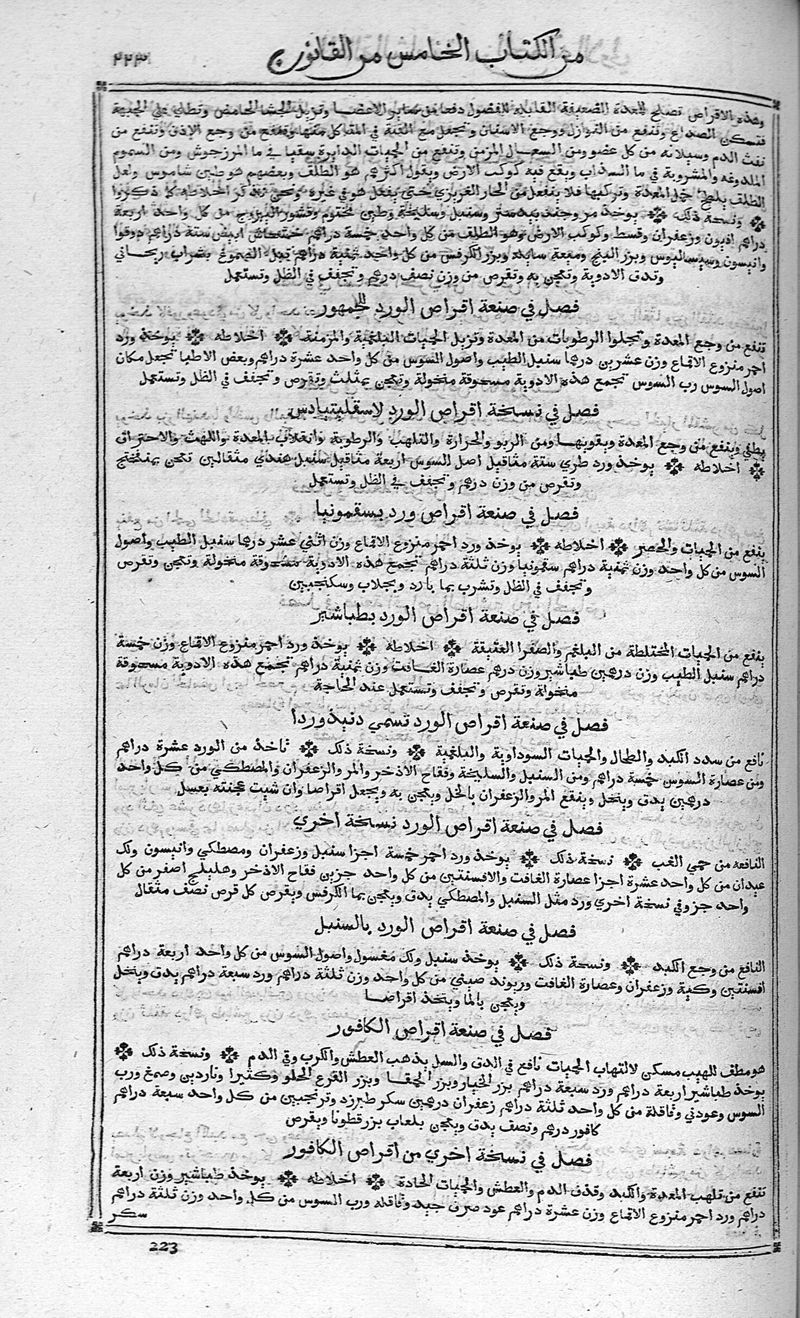 ٢٢٣
من الكتاب الخامس من القانون
وهذه الاقراص تصلح للمعدة الضعيفة القابلة للفضول دفعا من ساير الاعضا وتزيل الجشا الحامض وتطلي علي الجبهة
فتسكن الصداع وتنفع من النوازل ووجع الاسنان وتجعل مع القنة في المتاكل منها وتنفع من وجع الاذن وتنفع من
نفث الدم وسيلانه من كل عضو ومن السعال المزمن وتنفع من الحميات الدايرة سقيا في ما المرزجوش ومن السموم
الملدوغة والمشروبة في ما السداب ويقع فيه كوكب الارض ويقول اكثرهم هو الطلق وبعضهم هو طين شاموس ولعل
الطلق خمل المعدة وتركبها فلا ينفعل من الحار الغريزي حتي يفعل هو في غيره ونحن نذكر اخلاطه كما ذكروا
ونسخة ذلك يوخذ مر وجندبيدستر وسنبل وسليخة وطين مختوم وقشور اليبروج من كل واحد اربعة
دراهم افيون وزعفران وقسط وكوكب الارض وهو الطلق من كل واحد خمسة دراهم خشخاش ابيض ستة دراهم دوقوا
وانيسون وسيساليوس وبزر البنج وميعة سايلة وبزر الكرفس من كل واحد ثمنية دراهم تحل الصموغ بشراب ريحاني
وتدق الادوية وتعجن به وتقرص من وزن نصف درهم وتجفف في الظل وتستعمل
فصل في صنعة اقراص الورد للجمهور
تنفع من وجع المعدة وتجلوا الرطوبات من المعدة وتزيل الحميات البلغمية والمزمنة اخلاطه يوخذ ورد
احمر منزوع الاقماع وزن عشرين درهما سنبل الطيب واصول السوس من كل واحد عشرة دراهم وبعض الاطبا تجعل مكان
اصول السوس رب السوس تجمع هذه الادوية مسحوقة منخولة وتعجن بمثلث وتقرص وتجفف في الظل وتستعمل
فصل في نسخة اقراص الورد لاسقليبيادس
يطفي وينفع من وجع المعدة ويقويها ومن الربو والحرارة والتلهب والرطوبة وانقلاب المعدة واللهث والاحتراق
اخلاطه يوخذ ورد طري ستة مثاقيل اصل السوس اربعة مثاقيل سنبل هندي مثقالين تعجن بميفختج
وتقرص من وزن درهم وتجفف في الظل وتستعمل
فصل في صنعة اقراص ورد بسقمونيا
ينفع من الحميات والحصر اخلاطه يوخذ ورد احمر منزوع الاقماع وزن اثني عشر درهما سنبل الطيب واصول
السوس من كل واحد وزن ثمنية دراهم سقمونيا وزن ثلثة دراهم تجمع هذه الادوية مسحوقة منخولة وتعجن وتقرص
وتجفف في الظل وتشرب بما بارد وبجلاب وسكنجبين
فصل في صنعة اقراص الورد بطباشير
ينفع من الحميات المختلطة من البلغم والصفرا العتيقة اخلاطه يوخذ ورد احمر منزوع الاقماع وزن خمسة
دراهم سنبل الطيب وزن درهمين طباشير وزن درهم عصارة الغافت وزن ثمنية دراهم تجمع هذه الادوية مسحوقة
منخولة وتقرص وتجفف وتستعمل عند الحاجة
فصل في صنعة اقراص الورد تسمي دنيذوردا
نافع من سدد الكبد والطحال والحميات السوداوية والبلغمية ونسخة ذلك تاخذ من الورد عشرة دراهم
ومن عصارة السوس خمسة دراهم ومن السنبل والسليخة وفقاح الاذخر والمر والزعفران والمصطكي من كل واحد
درهمين يدق وينخل وينقع المر والزعفران بالخل ويعجن به ويجعل اقراصا وان شيت عجنته بعسل
فصل في صنعة اقراص الورد نسخة اخري
النافعه من حمي الغب نسخة ذلك يوخذ ورد احمر خمسة اجزا سنبل وزعفران ومصطكي وانيسون ولك
عيدان من كل واحد عشرة اجزا عصارة الغافت والافسنتين من كل واحد جزين فقاح الاذخر وهليلج اصفر من كل
واحد جز وفي نسخة اخري ورد مثل السنبل والمصطكي يدق ويعجن بما الكرفس ويقرص كل قرص نصف مثقال
فصل في صنعة اقراص الورد بالسنبل
النافع من وجع الكبد ونسخة ذلك يوخذ سنبل ولك مغسول واصول السوس من كل واحد اربعة دراهم
افسنتين وكية وزعفران وعصارة الغافت وريوند صيني من كل واحد وزن ثلثة دراهم ورد سبعة دراهم يدق وينخل
ويعجن بالما ويتخذ اقراصا
فصل في صنعة اقراص الكافور
هو مطف للهيب مسكن لالتهاب الحميات نافع في الدق والسل يذهب العطش والكرب وقي الدم ونسخة ذلك
يوخذ طباشير اربعة دراهم ورد سبعة دراهم بزر الخيار وبزر الحمقا وبزر القرع الحلو وكثيرا وناردين وصمغ ورب
السوس وعود ني وقاقلة من كل واحد ثلثة دراهم زعفران درهمين سكر طبرزد وترنجبين من كل واحد سبعة دراهم
كافور درهم ونصف يدق ويعجن بلعاب بزرقطونا ويقرص
فصل في نسخة اخري من اقراص الكافور
تنفع من تلهب المعدة والكبد وقذف الدم والعطش والحميات الحادة اخلاطه يوخذ طباشير وزن اربعة
دراهم ورد احمر منزوع الاقماع وزن عشرة دراهم عود صرف جيد وقاقله ورب السوس من كل واحد وزن ثلثة دراهم
سكر
223